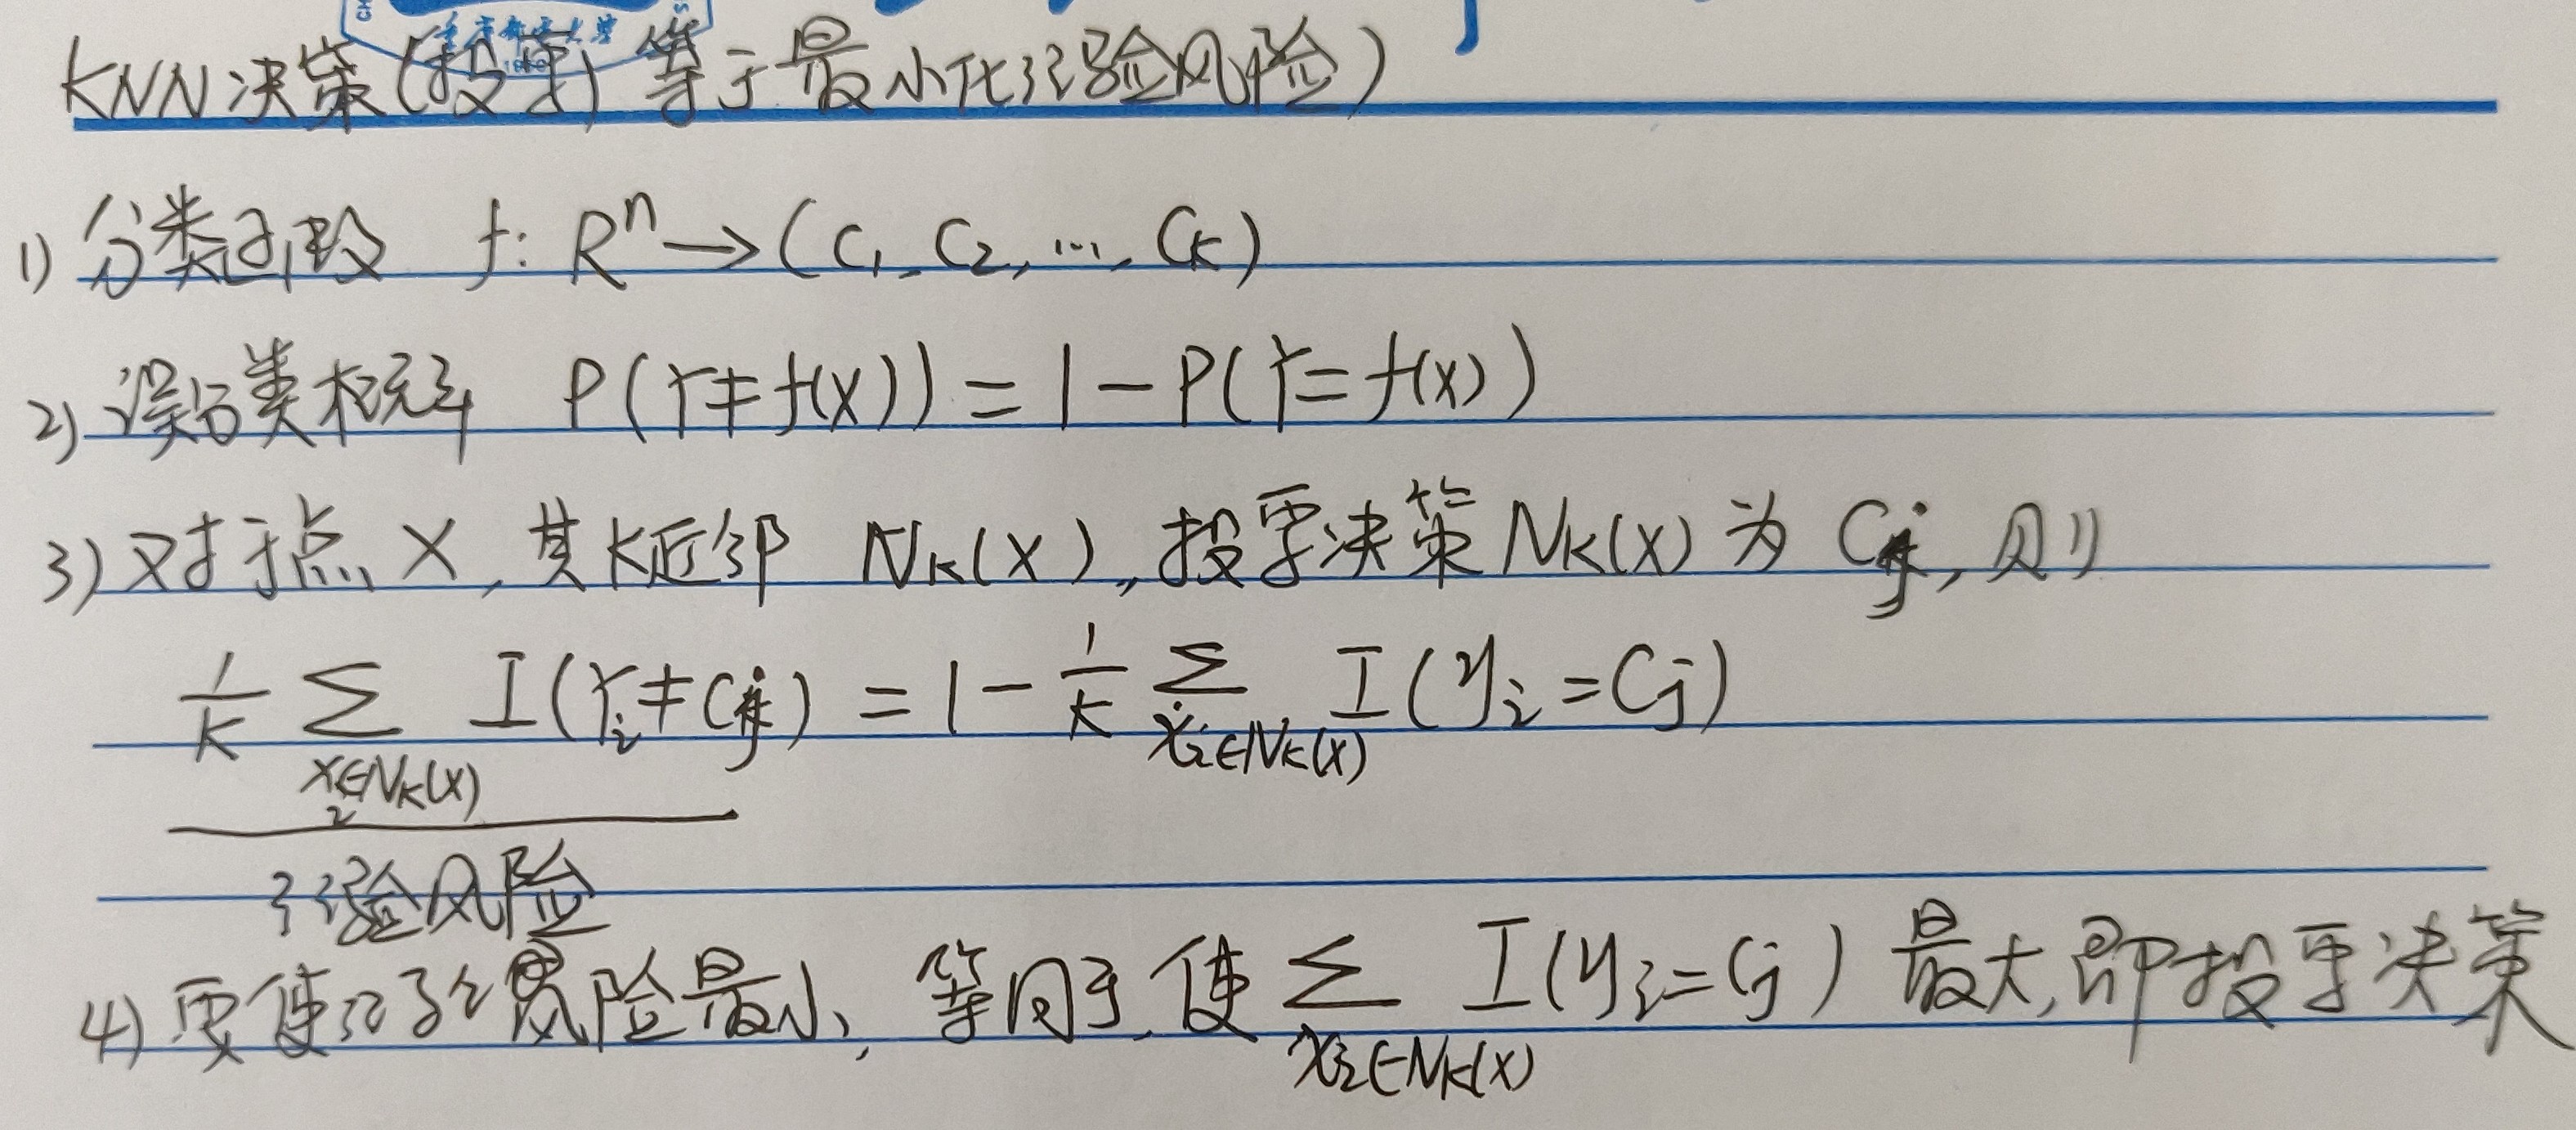 KNN决策(投票)等于最小化经验风险)
1) 分类函数 f: Rⁿ → (C₁, C₂, …, Cₖ)
2) 误分类概率 P(Y≠f(X)) = 1 - P(Y=f(X))
3) 对于点X, 其K近邻 Nₖ(X), 投票决策 Nₖ(X) 为 Cⱼ, 则
1/K ∑_{xᵢ∈Nₖ(X)} I(Yᵢ≠Cⱼ) = 1 - 1/K ∑_{xᵢ∈Nₖ(X)} I(yᵢ=Cⱼ)
经验风险
4) 要使经验风险最小, 等同于, 使 ∑_{xᵢ∈Nₖ(X)} I(yᵢ=Cⱼ) 最大, 即投票决策